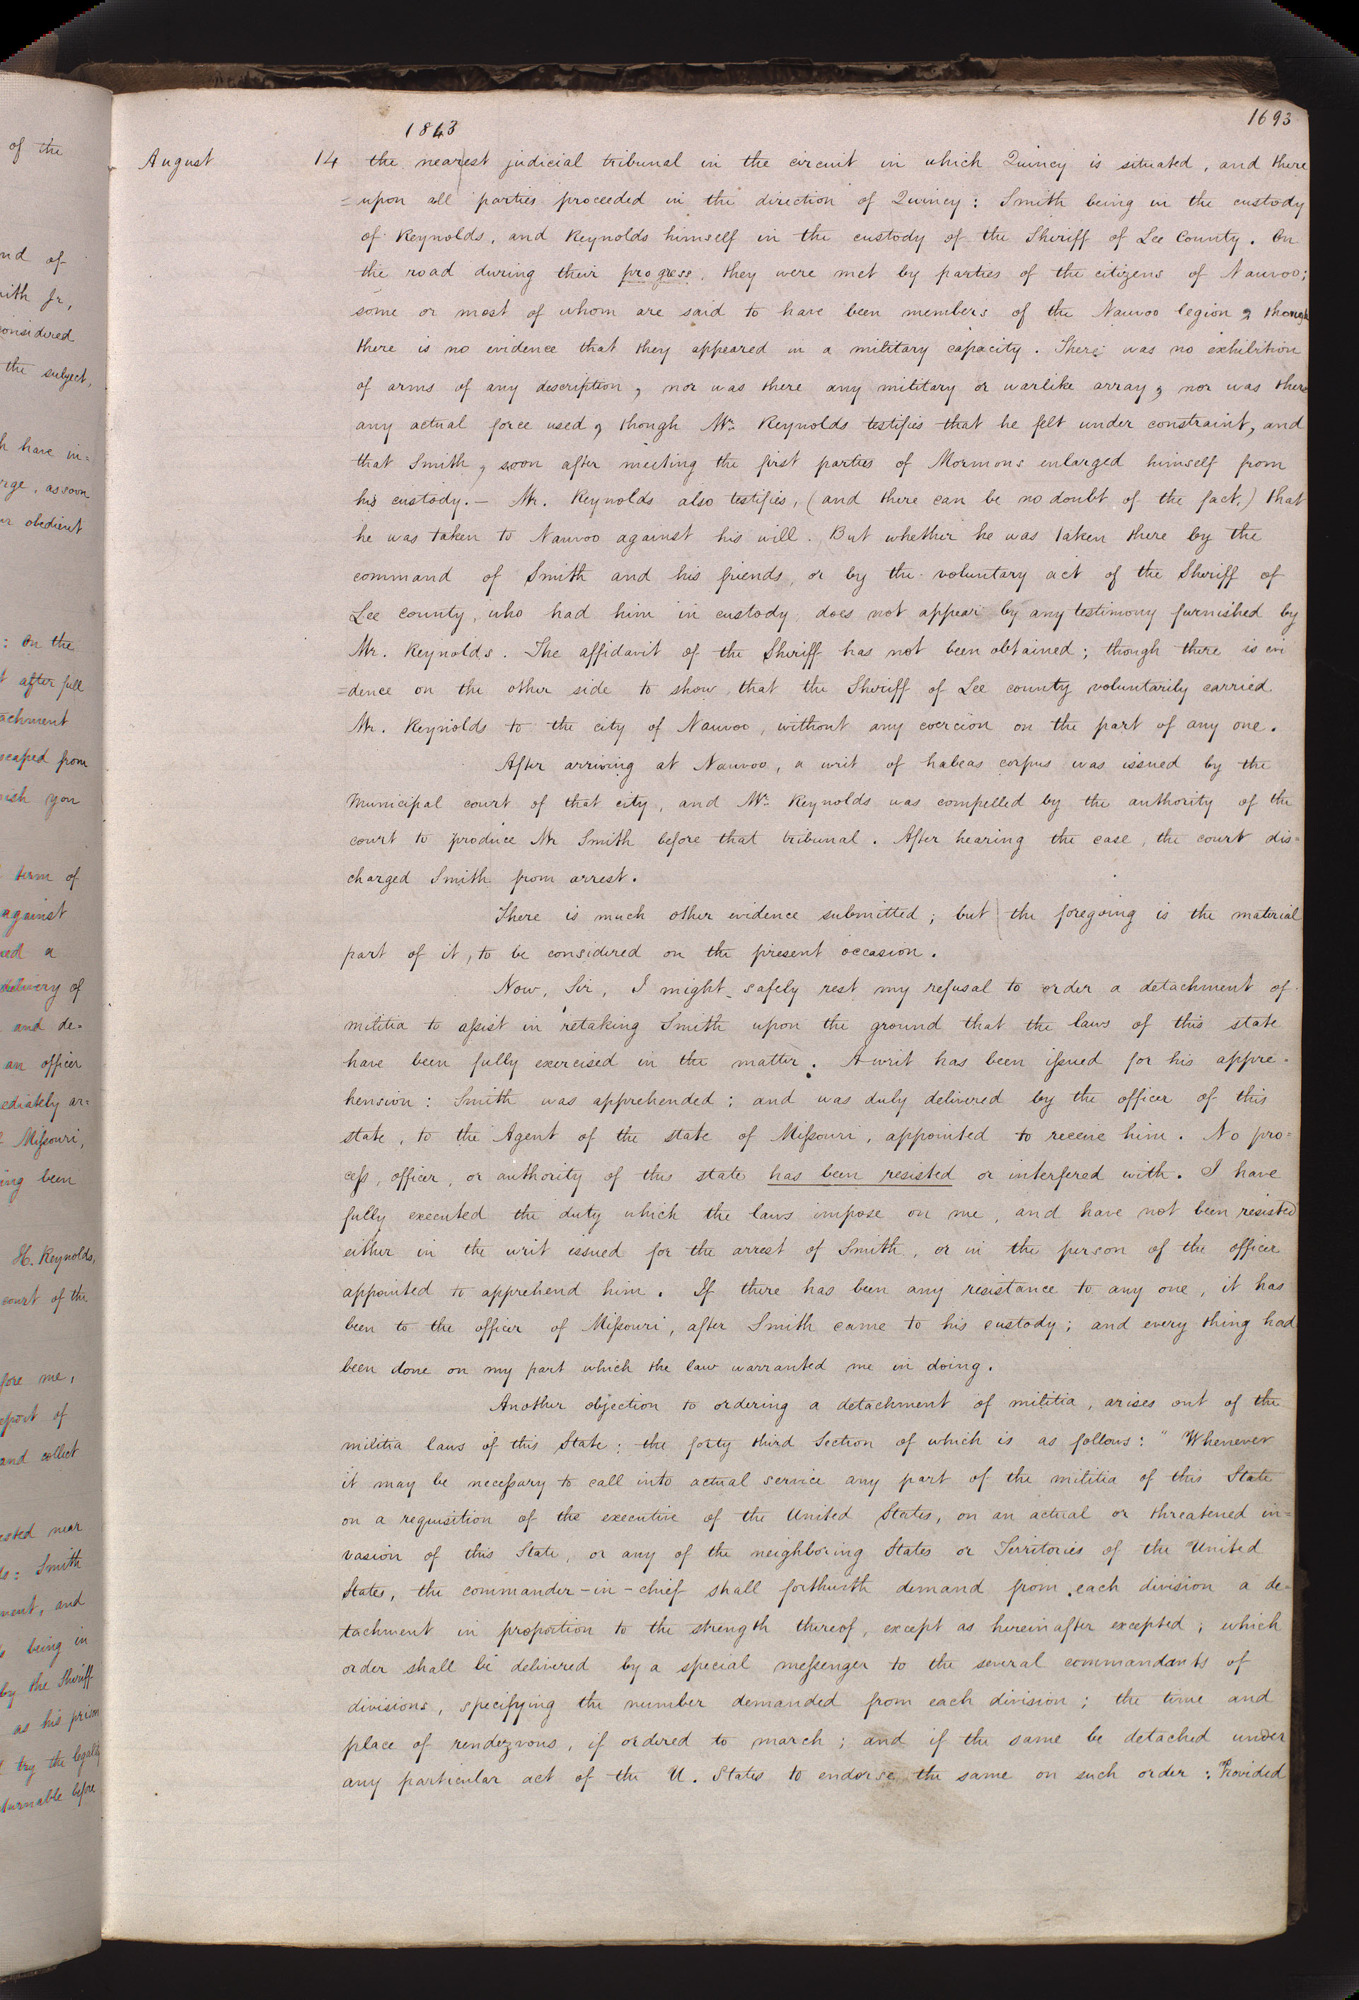 1843
1693
August 14 the nearest judicial tribunal in the circuit in which Quincy is situated, and there
=upon all parties proceeded in the direction of Quincy: Smith being in the custody
of Reynolds, and Reynolds himself in the custody of the Sheriff of Lee County. On
the road during their progress, they were met by parties of the citizens of Nauvoo;
some or most of whom are said to have been members of the Nauvoo legion, though
there is no evidence that they appeared in a military capacity. There was no exhibition
of arms of any description, nor was there any military or warlike array, nor was there
any actual force used, though Mr. Reynolds testifies that he felt under constraint, and
that Smith, soon after meeting the first parties of Mormons enlarged himself from
his custody.— Mr. Reynolds also testifies, (and there can be no doubt of the fact,) that
he was taken to Nauvoo against his will. But whether he was taken there by the
command of Smith and his friends, or by the voluntary act of the Sheriff of
Lee county, who had him in custody, does not appear by any testimony furnished by
Mr. Reynolds. The affidavit of the Sheriff has not been obtained; though there is evi
=dence on the other side to show, that the Sheriff of Lee county voluntarily carried
Mr. Reynolds to the city of Nauvoo, without any coercion on the part of any one.
After arriving at Nauvoo, a writ of habeas corpus was issued by the
Municipal court of that city, and Mr. Reynolds was compelled by the authority of the
court to produce Mr Smith before that tribunal. After hearing the case, the court dis=
charged Smith from arrest.
There is much other evidence submitted; but the foregoing is the material
part of it, to be considered on the present occasion.
Now, Sir, I might safely rest my refusal to order a detachment of
militia to assist in retaking Smith upon the ground that the laws of this state
have been fully exercised in the matter. A writ has been issued for his appre-
hension: Smith was apprehended; and was duly delivered by the officer of this
state, to the Agent of the state of Missouri, appointed to receive him. No pro=
cess, officer, or authority of this state has been resisted or interfered with. I have
fully executed the duty which the laws impose on me, and have not been resisted
either in the writ issued for the arrest of Smith, or in the person of the officer
appointed to apprehend him. If there has been any resistance to any one, it has
been to the officer of Missouri, after Smith came to his custody; and every thing had
been done on my part which the law warranted me in doing.
Another objection to ordering a detachment of militia, arises out of the
militia laws of this State; the forty third Section of which is as follows: "Whenever
it may be necessary to call into actual service any part of the militia of this State
on a requisition of the executive of the United States, on an actual or threatened in=
vasion of this State, or any of the neighboring States or Territories of the United
States, the commander-in-chief shall forthwith demand from each division a de-
tachment in proportion to the strength thereof, except as hereinafter excepted; which
order shall be delivered by a special messenger to the several commandants of
divisions, specifying the number demanded from each division; the time and
place of rendezvous, if ordered to march; and if the same be detached under
any particular act of the U. States to endorse the same on such order: Provided
of the
nd of
ith Jr,
onsidered
the subject,
h have in=
rge, as soon
r obedient
: On the
t after full
achment
scaped from
ish you
term of
against
ed a
delivery of
and de-
an officer
ediately ar=
Missouri,
ing been
H. Reynolds,
court of the
fore me,
eport of
and collect
ested near
ds: Smith
ment, and
s being in
by the Sheriff
as his prison
try the legality
turnable before